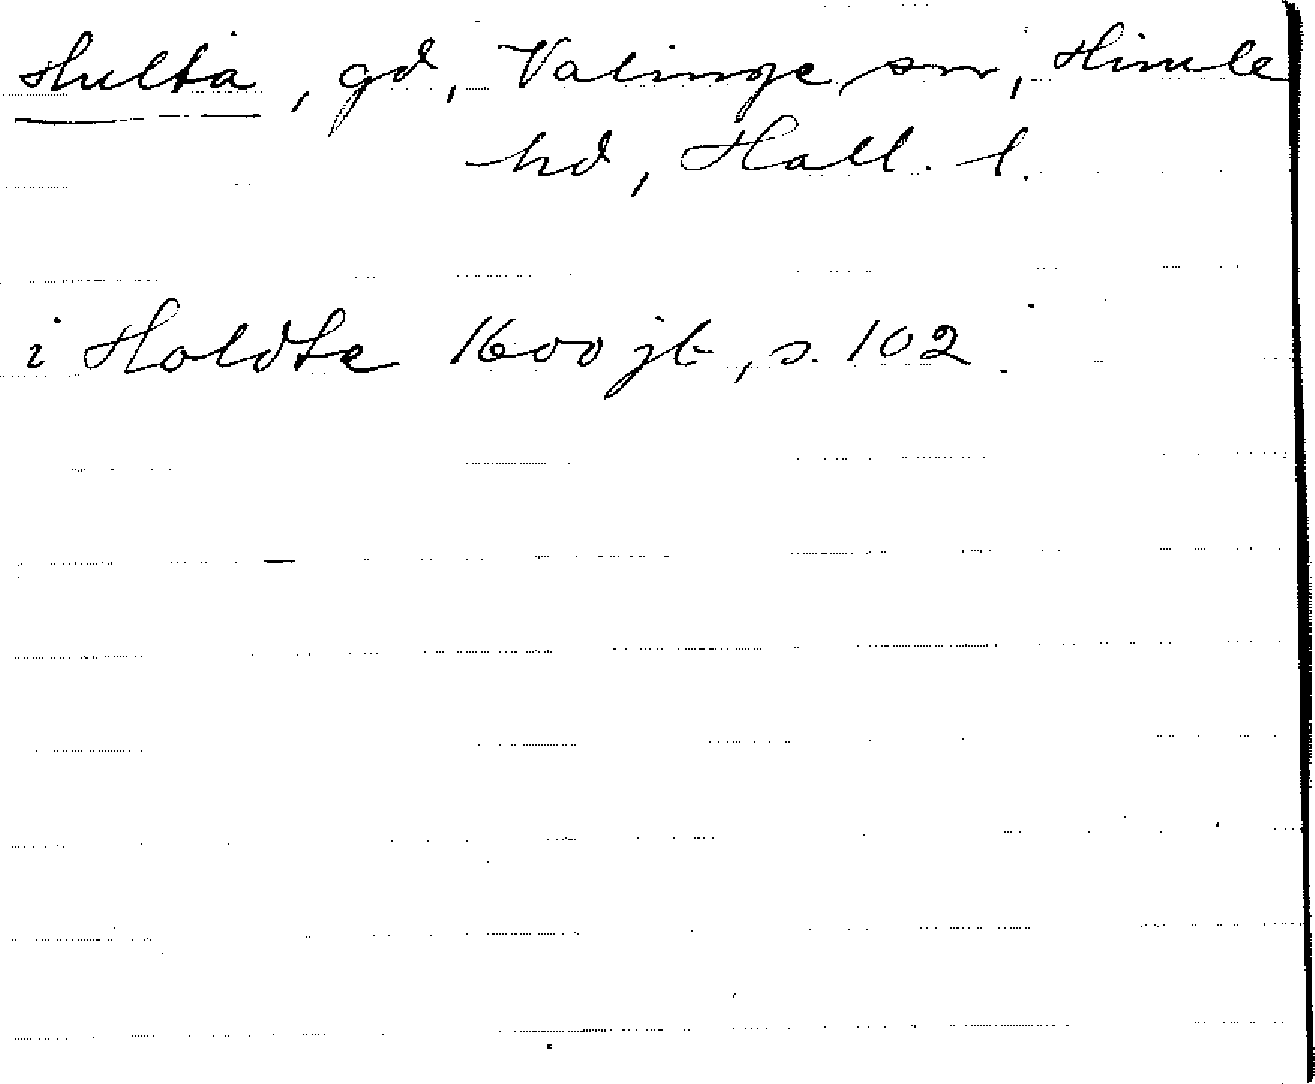 Hulta, gd, Valinge sn, Himle
hd, Hall. l.
i Holdte 1600 jb, s. 102.